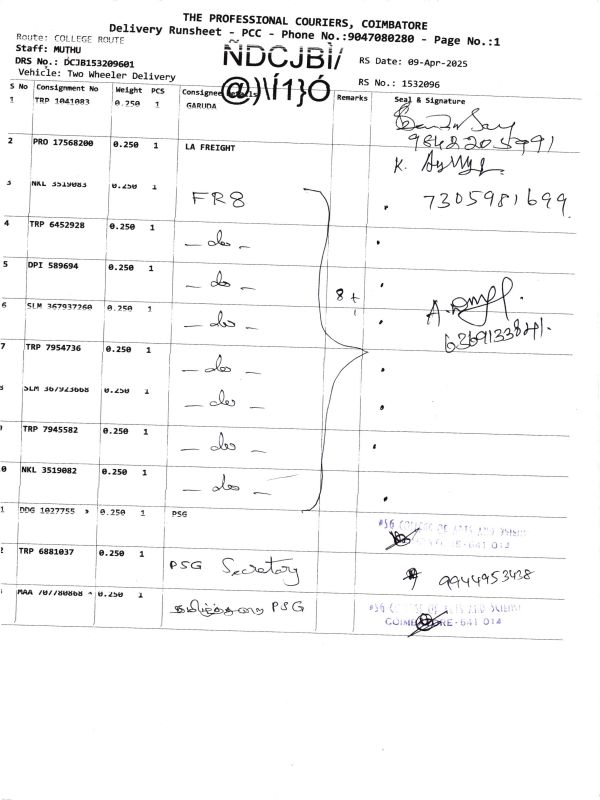 THE PROFESSIONAL COURIERS, COIMBATORE
Delivery Runsheet - PCC - Phone No.:9047080280 - Page No.:1
Route: COLLEGE ROUTE
Staff: MUTHU
DRS No.: DCJB153209601
Vehicle: Two Wheeler Delivery
ÑDCJBÌ/
@)\Í1}Ó
RS Date: 09-Apr-2025
RS No.: 1532096
S No Consignment No Weight PCS Consignee Details Remarks Seal & Signature
1 TRP 1041083 0.250 1 GARUDA
9842205991
2 PRO 17568200 0.250 1 LA FREIGHT
K.
3 NKL 3519083 0.250 1 FR8 7305981699
4 TRP 6452928 0.250 1 - do -
5 DPI 589694 0.250 1 - do -
8 + 1
6 SLM 367937260 0.250 1 - do -
6369133841.
7 TRP 7954736 0.250 1 - do -
8 SLM 367923668 0.250 1 - do -
9 TRP 7945582 0.250 1 - do -
0 NKL 3519082 0.250 1 - do -
1 DDG 1027755 0.250 1 PSG
PSG COLLEGE OF ARTS AND SCIENCE
COIMBATORE-641 014
2 TRP 6881037 0.250 1 PSG Secretary 9944953438
MAA 707780868 0.250 1 PSG
PSG COLLEGE OF ARTS AND SCIENCE
COIMBATORE-641 014